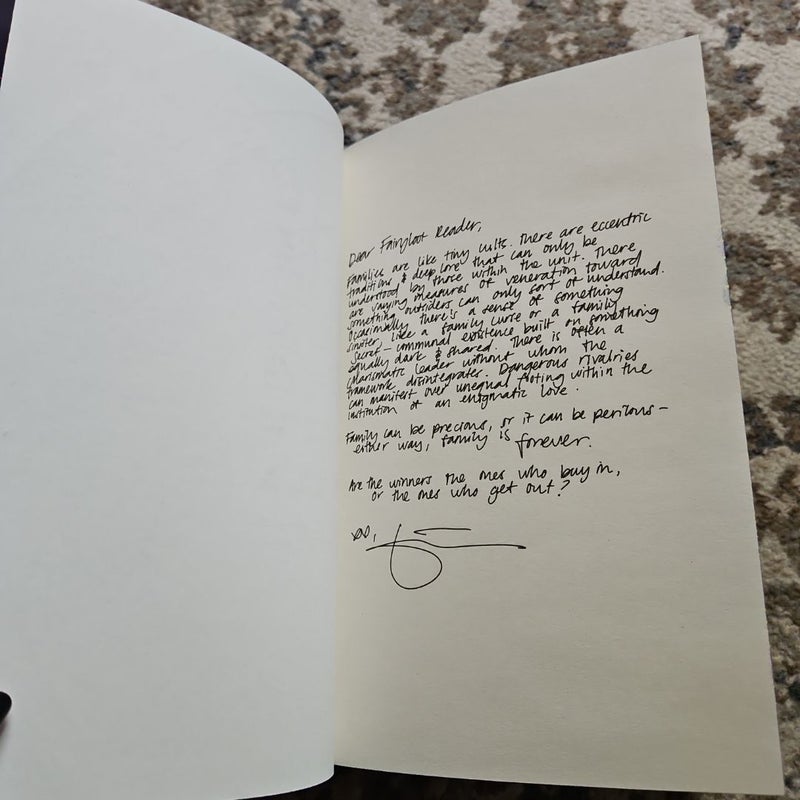 Dear Fairyloot Reader,
Families are like tiny cults. There are eccentric
traditions & deep lore that can only be
understood by those within the unit. There
are varying measures of veneration toward
something outsiders can only sort of understand.
Occasionally, there's a sense of something
sinister, like a family curse or a family
secret – communal existence built on something
equally dark & shared. There is often a
charismatic leader without whom the
framework disintegrates. Dangerous rivalries
can manifest over unequal footing within the
institution of an enigmatic love.
Family can be precious, or it can be perilous –
either way, family is forever.
Are the winners the ones who buy in,
or the ones who get out?